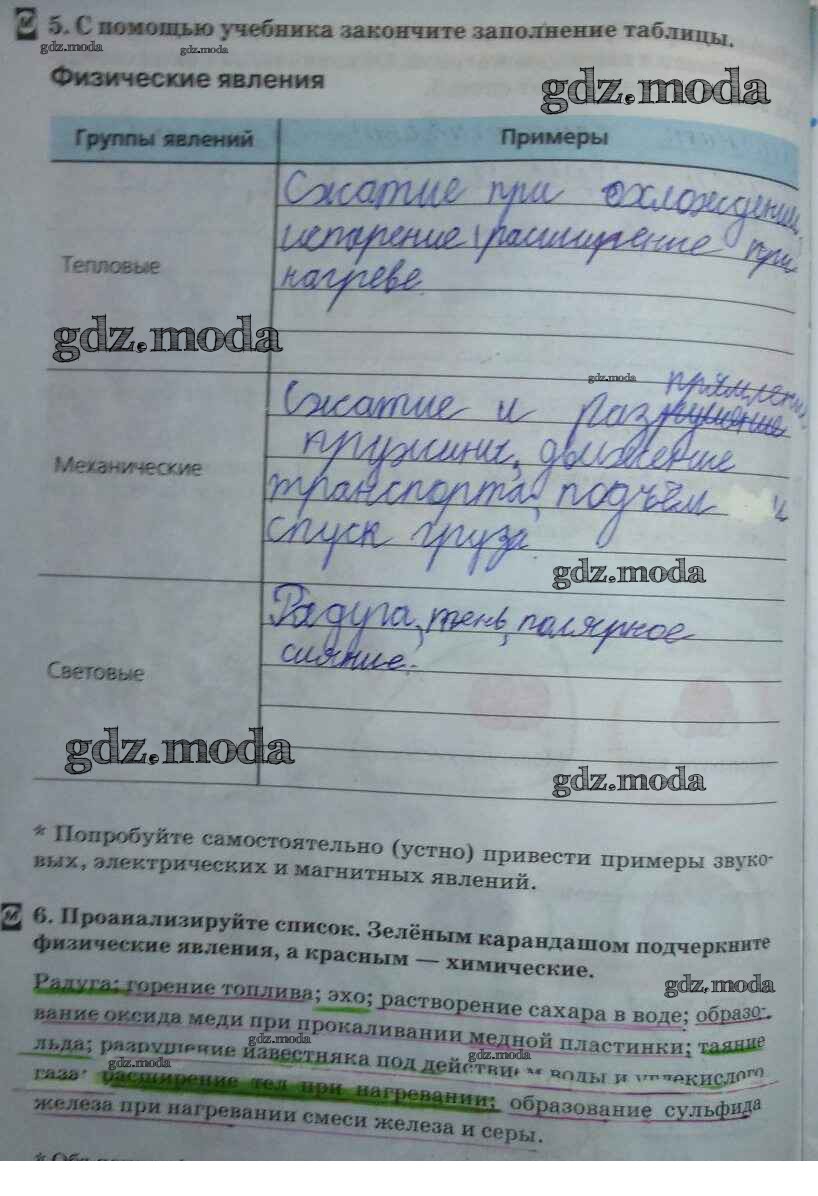 5. С помощью учебника закончите заполнение таблицы.
gdz.moda gdz.moda
Физические явления
gdz.moda
Группы явлений Примеры
Сжатие при охлождении,
испарение, расширение при
Тепловые
нагреве.
gdz.moda
gdz.moda
прямление
Сжатие и разрушение
Механические
пружини, движение
транспорта, подъём и
спуск груза.
gdz.moda
Радуга, тень, полярное
сияние.
Световые
gdz.moda
gdz.moda
* Попробуйте самостоятельно (устно) привести примеры звуко-
вых, электрических и магнитных явлений.
6. Проанализируйте список. Зелёным карандашом подчеркните
физические явления, а красным — химические.
gdz.moda
Радуга; горение топлива; эхо; растворение сахара в воде; образо-
вание оксида меди при прокаливании медной пластинки; таяние
gdz.moda
льда; разрушение известняка под действием воды и углекислого
gdz.moda gdz.moda
газа; расширение тел при нагревании; образование сульфида
железа при нагревании смеси железа и серы.